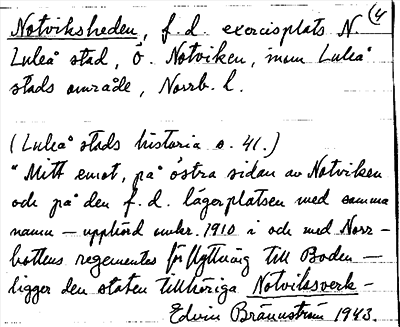 (4
Notviksheden, f.d. exercisplats N.
Luleå stad, ö. Notviken, inom Luleå
stads område, Norrb. l.
(Luleå stads historia s. 41.)
"Mitt emot, på östra sidan av Notviken
och på den f.d. lägerplatsen med samma
namn — upphörd omkr. 1910 i och med Norr-
bottens regementes förflyttning till Boden —
ligger den staten tillhöriga Notviksverk-
Edvin Brännström 1943.